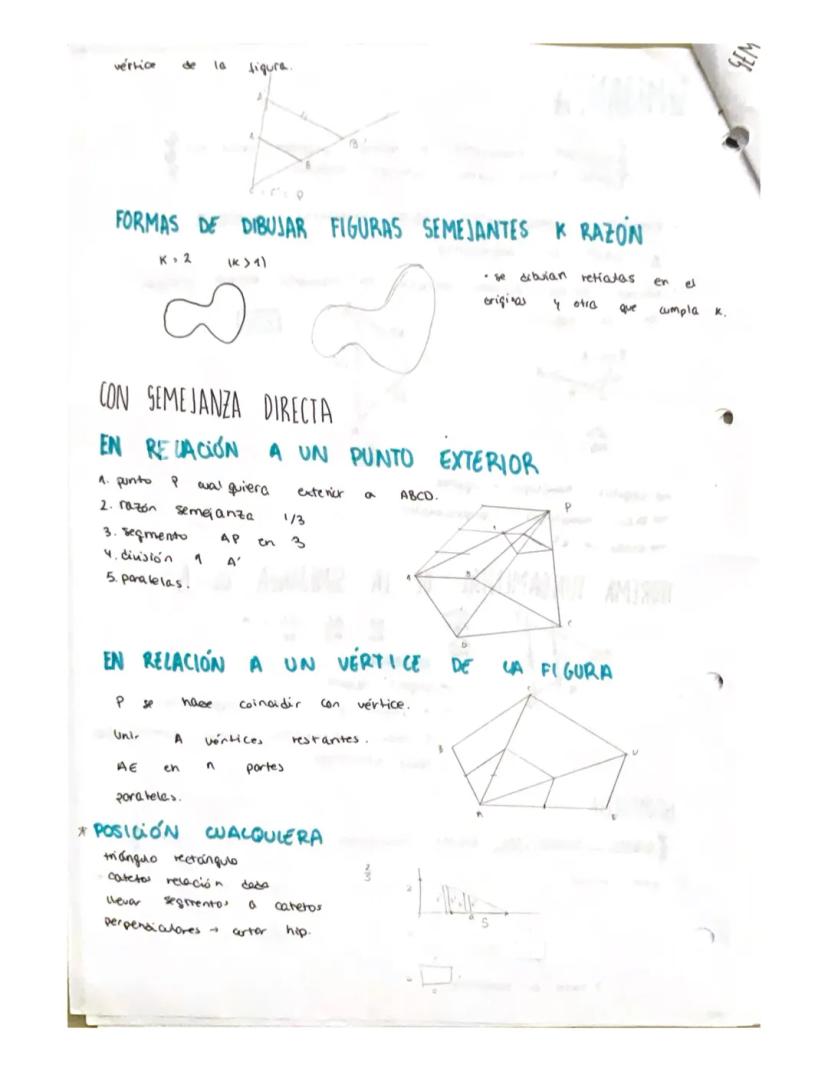 vértice de la figura.
A'
A
B'
B
C = C' = P
FORMAS DE DIBUJAR FIGURAS SEMEJANTES K RAZÓN
K = 2 (K > 1)
· se dibujan retículas en el
original y otra que cumpla K.
CON SEMEJANZA DIRECTA
EN RELACIÓN A UN PUNTO EXTERIOR
1. punto P cualquiera exterior a ABCD.
2. razón semejanza 1/3
3. segmento AP en 3
4. división 1 A'
5. paralelas.
P
A
B
C
D
EN RELACIÓN A UN VÉRTICE DE LA FIGURA
P se hace coincidir con vértice.
Unir A vértices restantes.
AE en n partes
paralelas.
B
A
* POSICIÓN CUALQUIERA
triángulo rectángulo
catetos relación dada
llevar segmentos a catetos
perpendiculares → cortar hip.
2
3
2
5
SEM